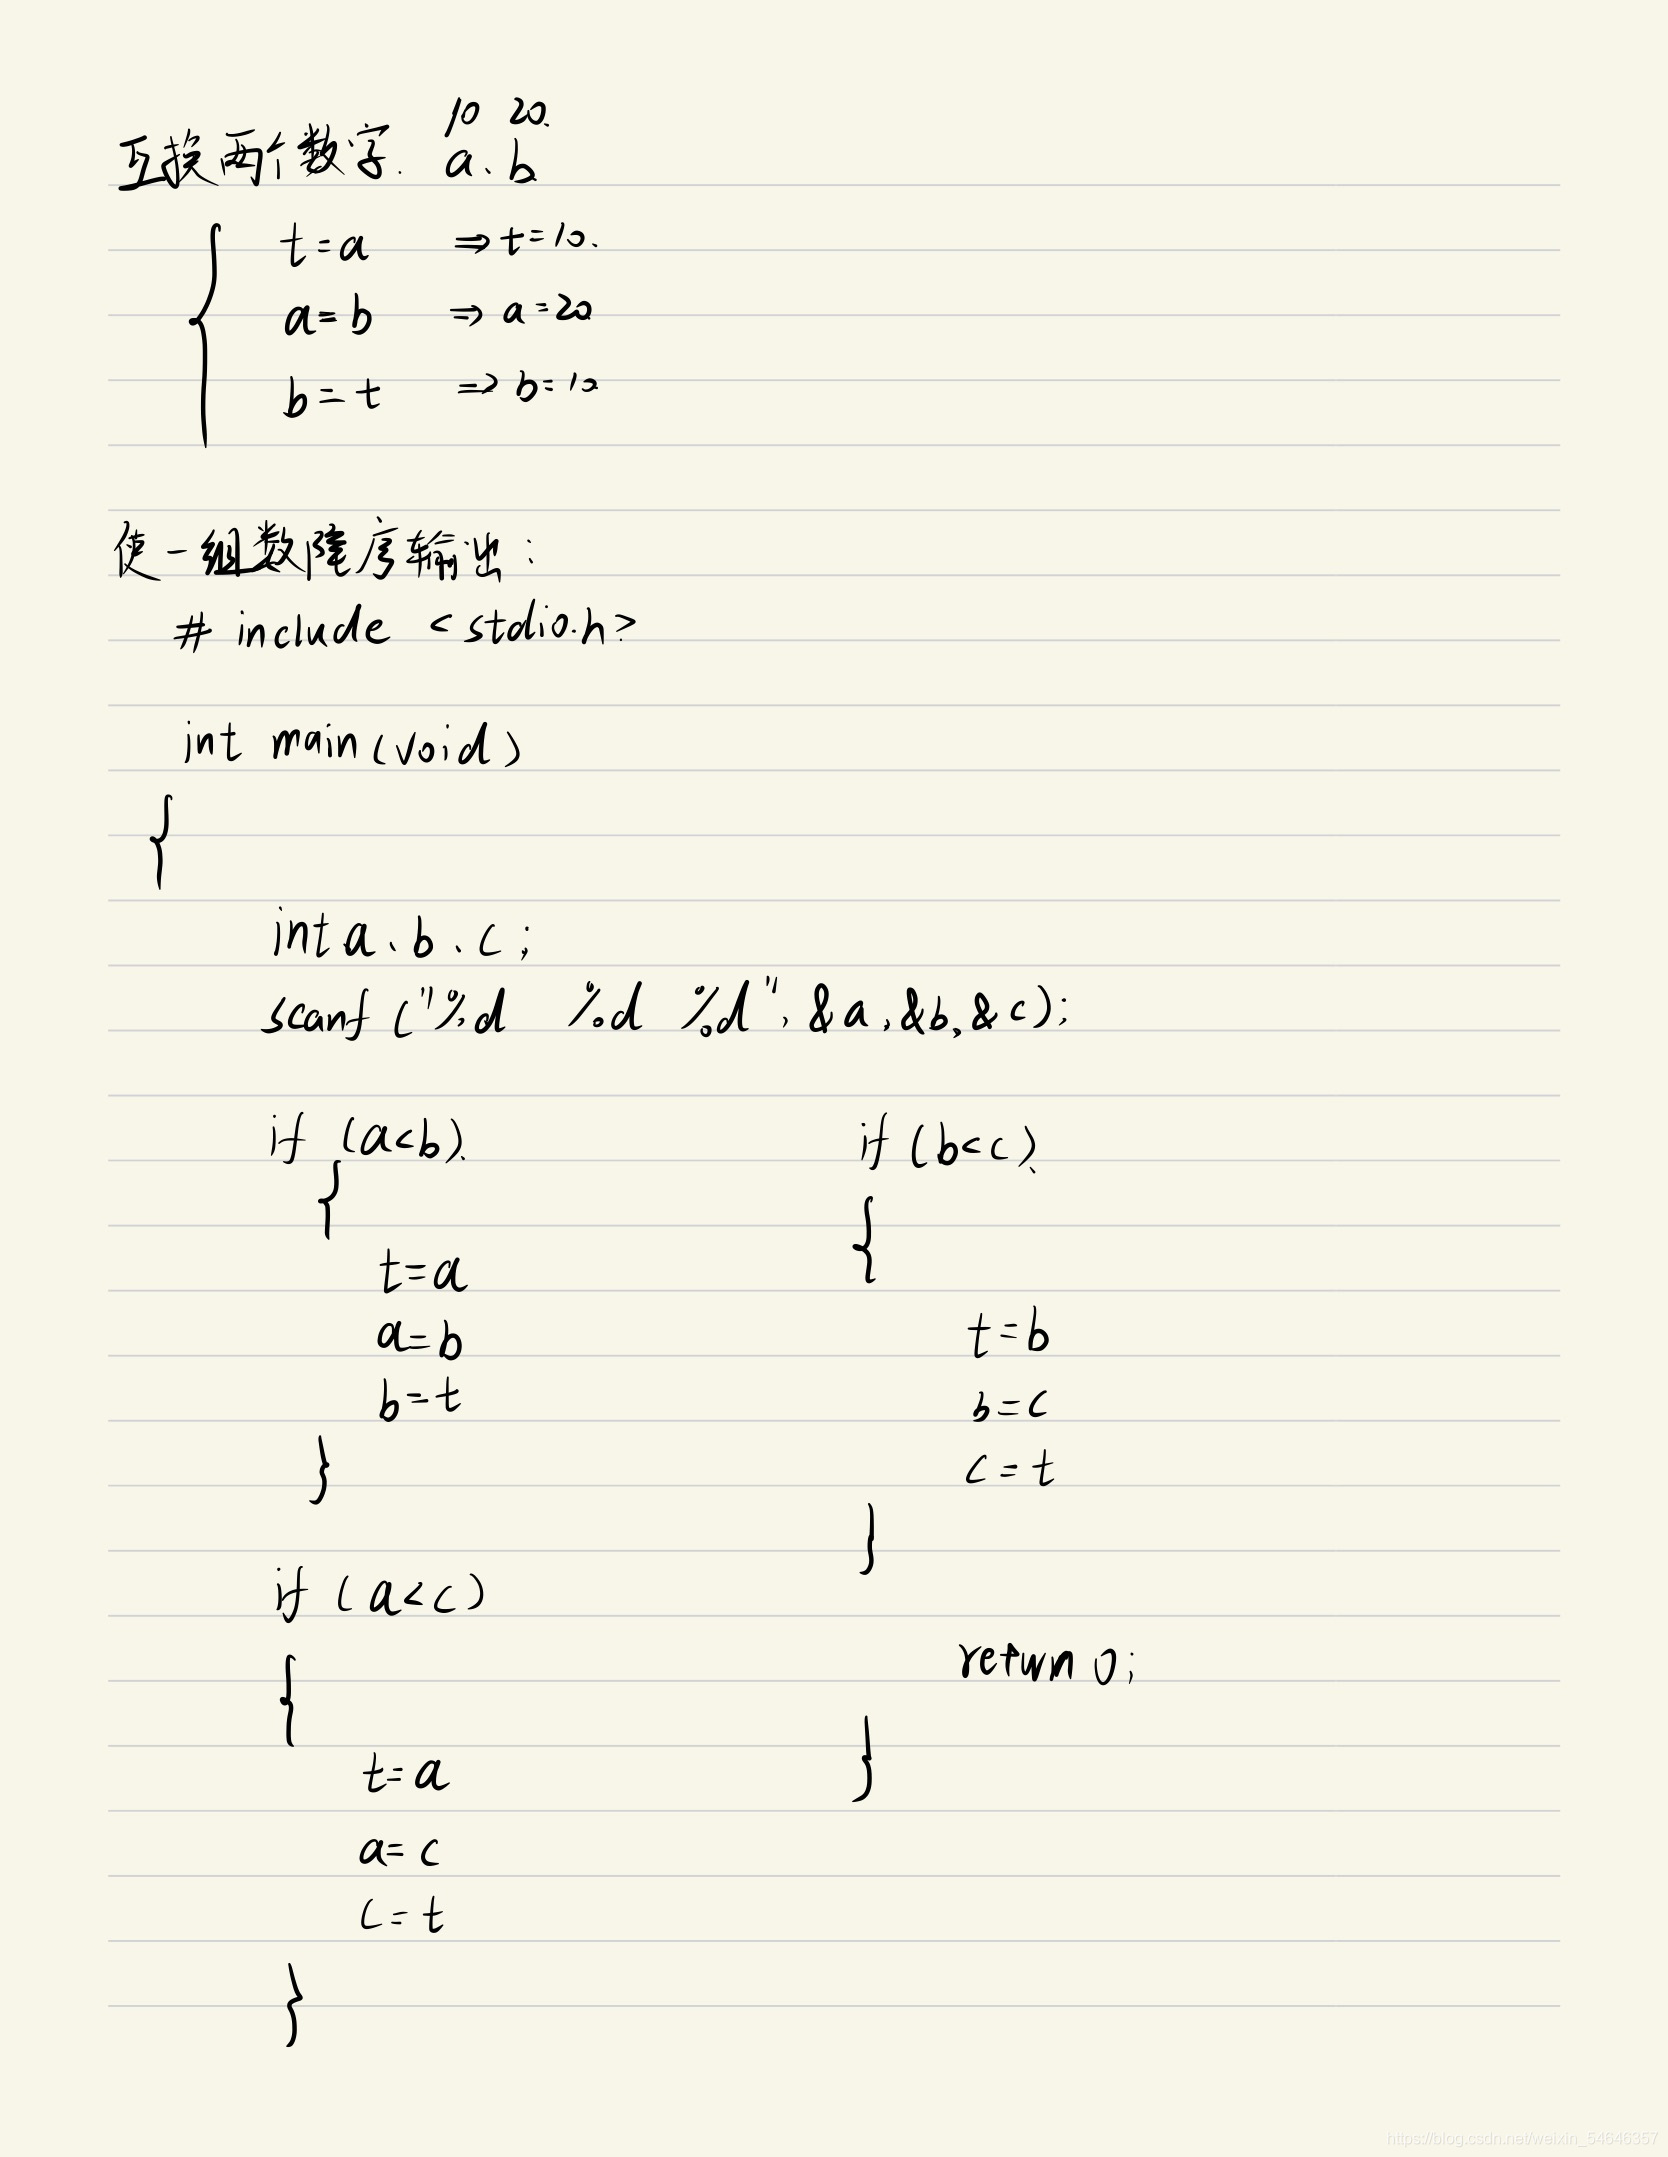 10 20.
互换两个数字. a、b
{ t=a ⇒ t=10.
a=b ⇒ a=20
b=t ⇒ b=10
使一组数降序输出:
# include <stdio.h>
int main(void)
{
int a、b、c;
scanf ("%d %d %d", &a, &b, &c);
if (a<b)
{
t=a
a=b
b=t
}
if (a<c)
{
t=a
a=c
c=t
}
if (b<c)
{
t=b
b=c
c=t
}
return 0;
}
https://blog.csdn.net/weixin_54646357